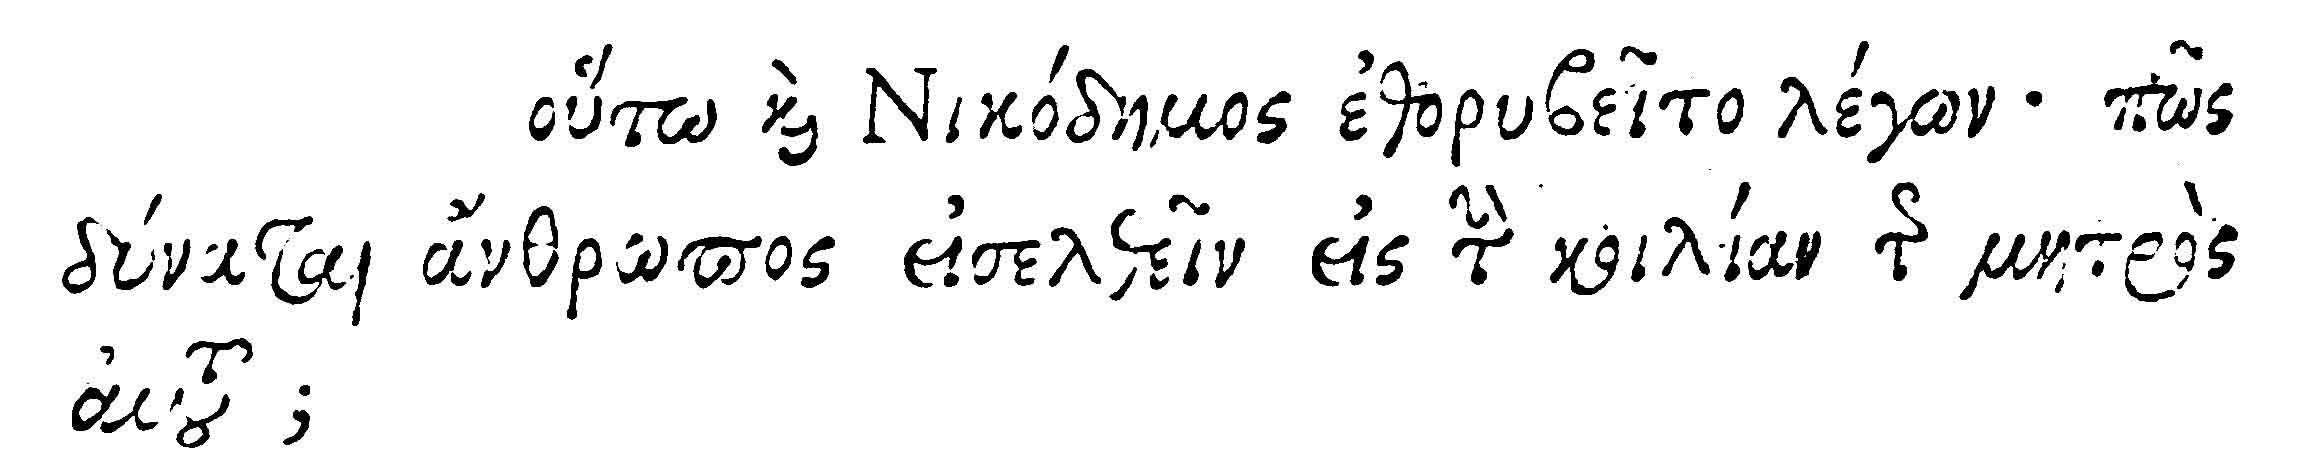 οὕτω ϗ̀ Νικόδημος ἐθορυβεῖτο λέγων· πῶς
δύναται ἄνθρωπος εἰσελθεῖν εἰς τὴν κοιλίαν τῆς μητρὸς
αὐτοῦ;